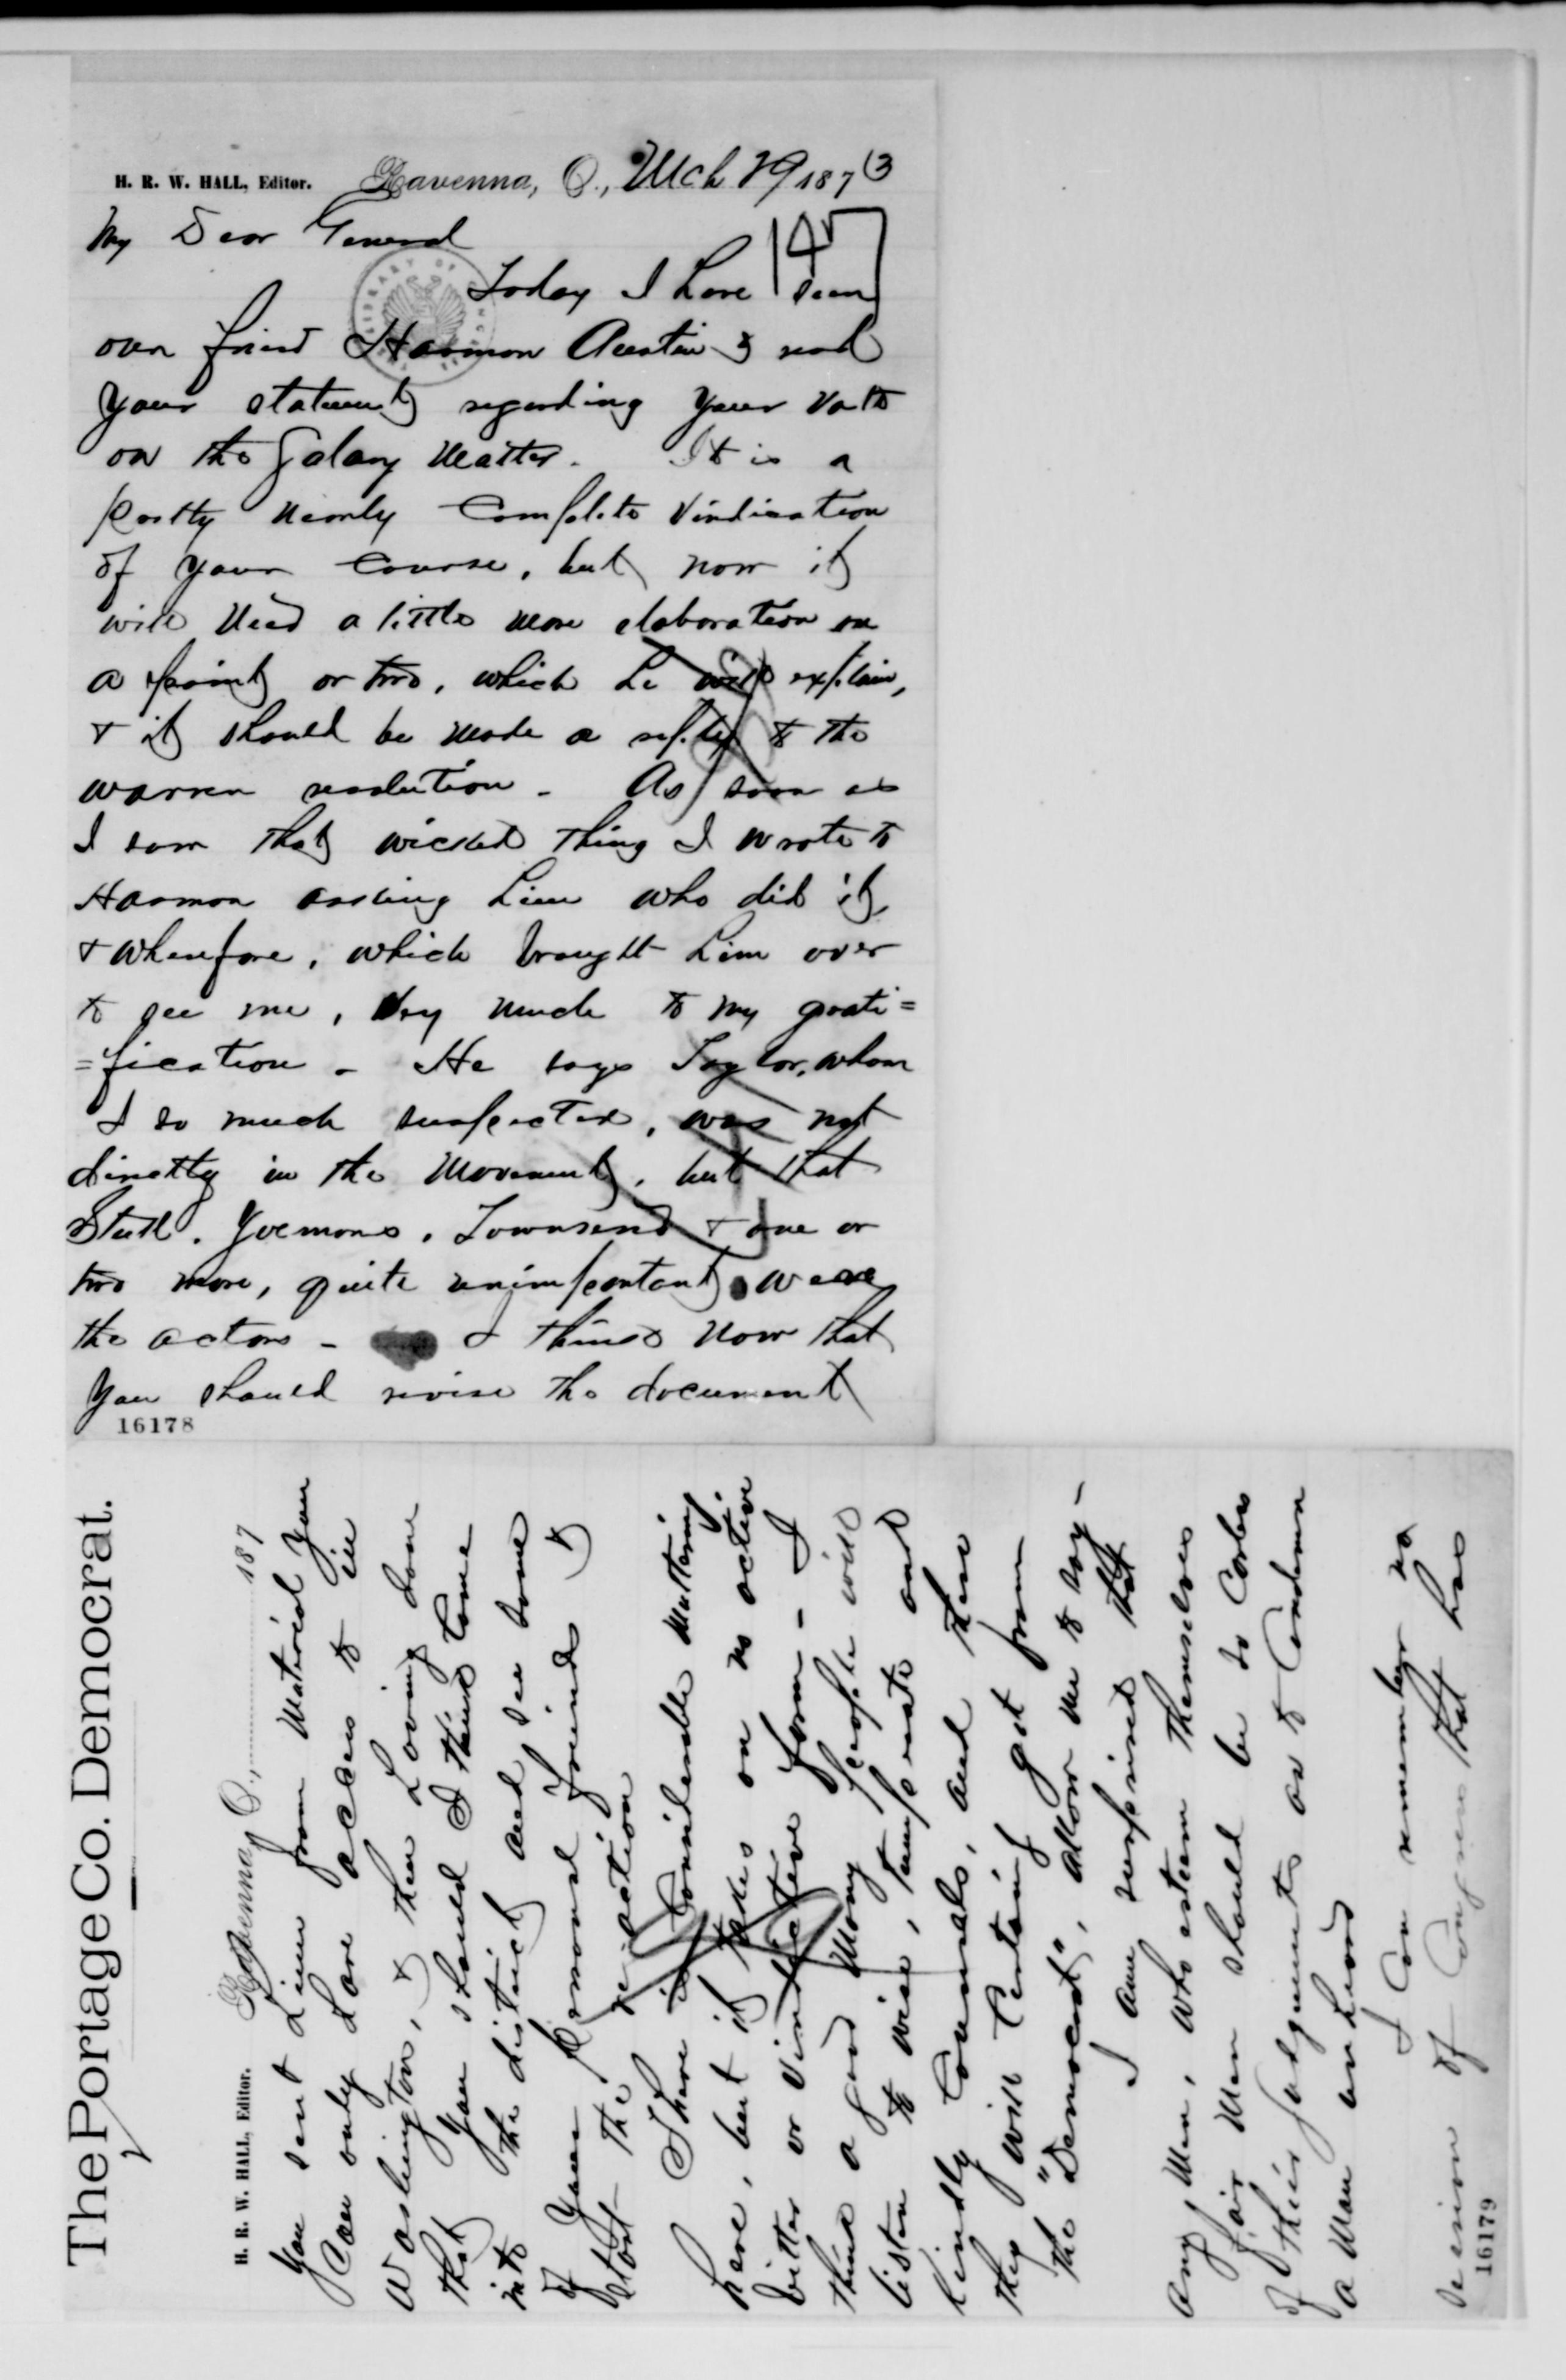 H. R. W. HALL, Editor. Ravenna, O., Mch 29 1873
145
My Dear General
Today I have seen
our friend Harmon Austin & read
your statement regarding your vote
on the Salary Matter. It is a
pretty nearly complete vindication
of your course, but now it
will need a little more elaboration on
a point or two, which he will explain,
& it should be made a reply to the
warren resolution - As soon as
I saw that wicked thing I wrote to
Harmon asking him who did it,
& wherefore, which brought him over
to see me, very much to my grati=
=fication - He says Taylor, whom
I so much suspected, was not
directly in the movement, but that
Stull, Yoemans, Townsend & one or
two more, quite unimportant, were
the actors - I think now that
you should revise the document
16178
The Portage Co. Democrat.
H. R. W. HALL, Editor. Ravenna, O., 187
You sent him from material you
can only have access to in
Washington, & then having done
that you should I think come
into the district and see some
of your personal friends &
start the reaction
There is considerable muttering
here, but it takes on no active
bitter or vindictive form - I
think a good many people will
listen to wise, temperate and
kindly counsels, and these
they will certainly get from
the "Democrat", allow me to say -
I am surprised that
any men, who esteem themselves
fair men should be so careless
of their judgments as to condemn
a man unheard
I can remember no
session of Congress that has
16179